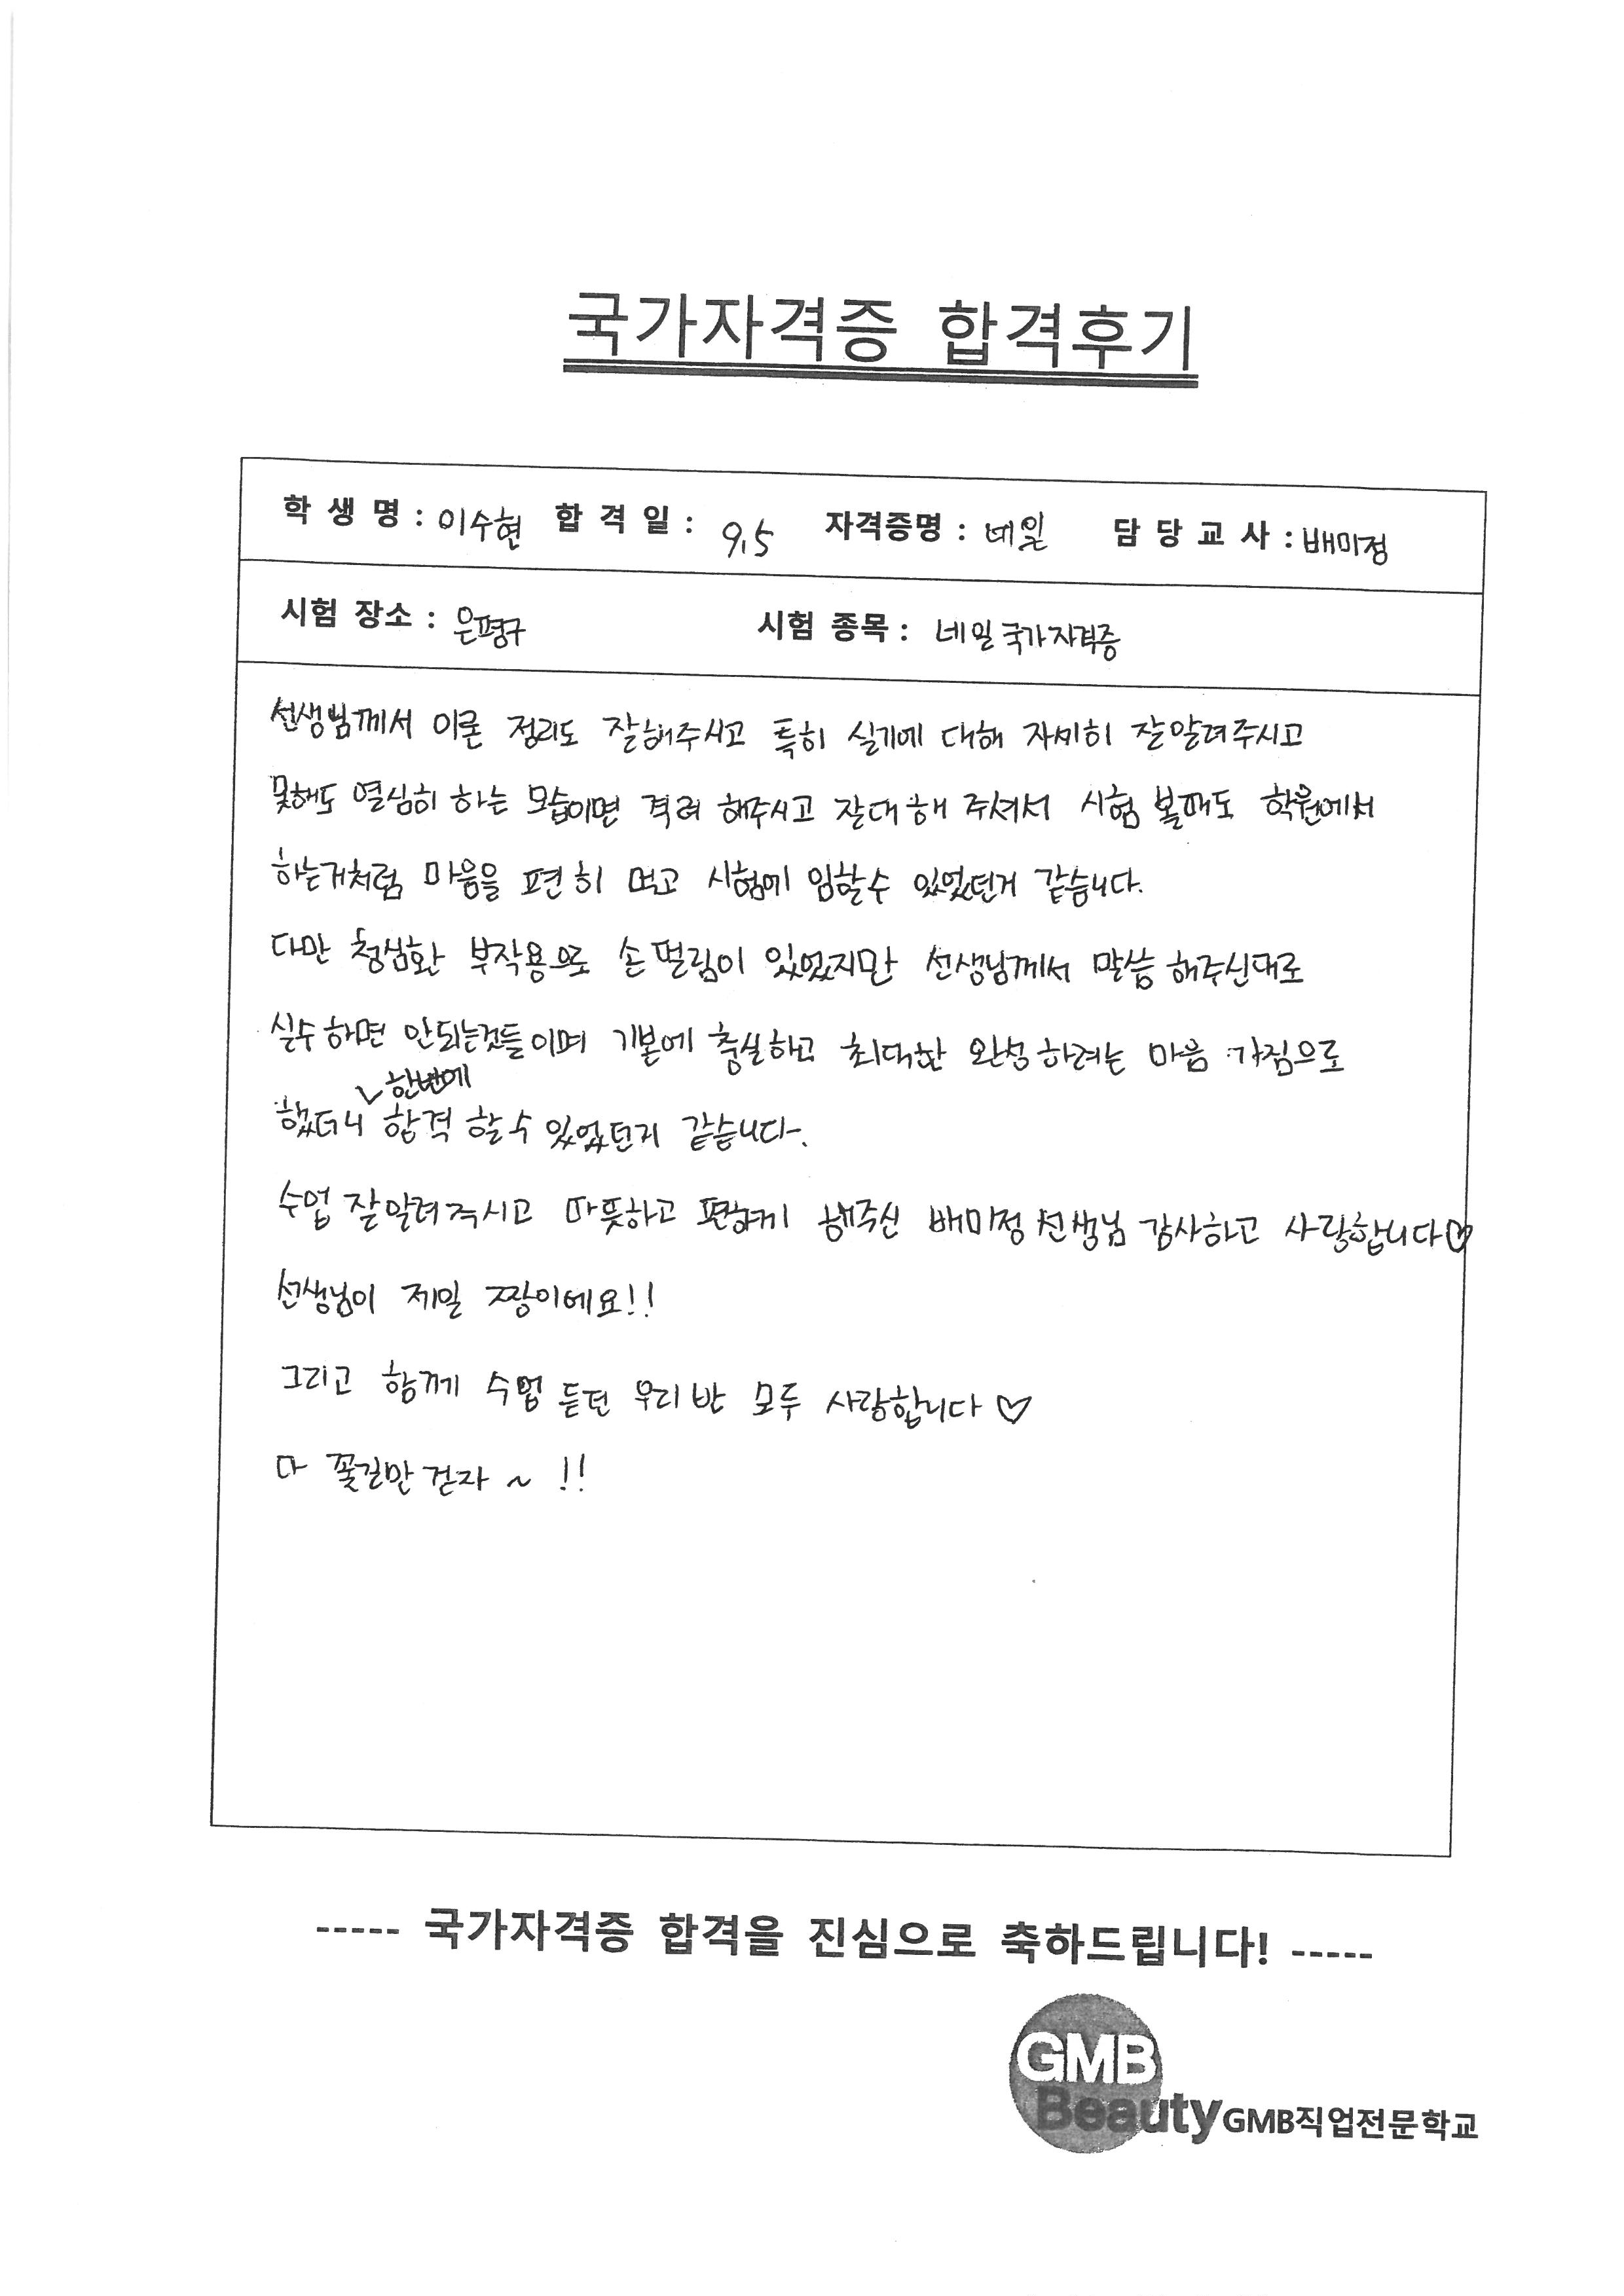 국가자격증 합격후기
학 생 명 : 이수현 합 격 일 : 9.5 자격증명 : 네일 담 당 교 사 : 배미정
시험 장소 : 은평구 시험 종목 : 네일 국가자격증
선생님께서 이론 정리도 잘해주시고 특히 실기에 대해 자세히 잘알려주시고
못해도 열심히 하는 모습이면 격려 해주시고 잘대해 주셔서 시험 볼때도 학원에서
하는거처럼 마음을 편히 먹고 시험에 임할수 있었던거 같습니다.
다만 청심환 부작용으로 손 떨림이 있었지만 선생님께서 말씀 해주신대로
실수하면 안되는것들이며 기본에 충실하고 최대한 완성하려는 마음 가짐으로
했더니 한번에 합격 할수 있었던거 같습니다.
수업 잘알려주시고 따뜻하고 편하게 해주신 배미정 선생님 감사하고 사랑합니다♡
선생님이 제일 짱이에요!!
그리고 함께 수업 듣던 우리반 모두 사랑합니다♡
다 꽃길만 걷자 ~ !!
----- 국가자격증 합격을 진심으로 축하드립니다! -----
GMB
Beauty GMB직업전문학교